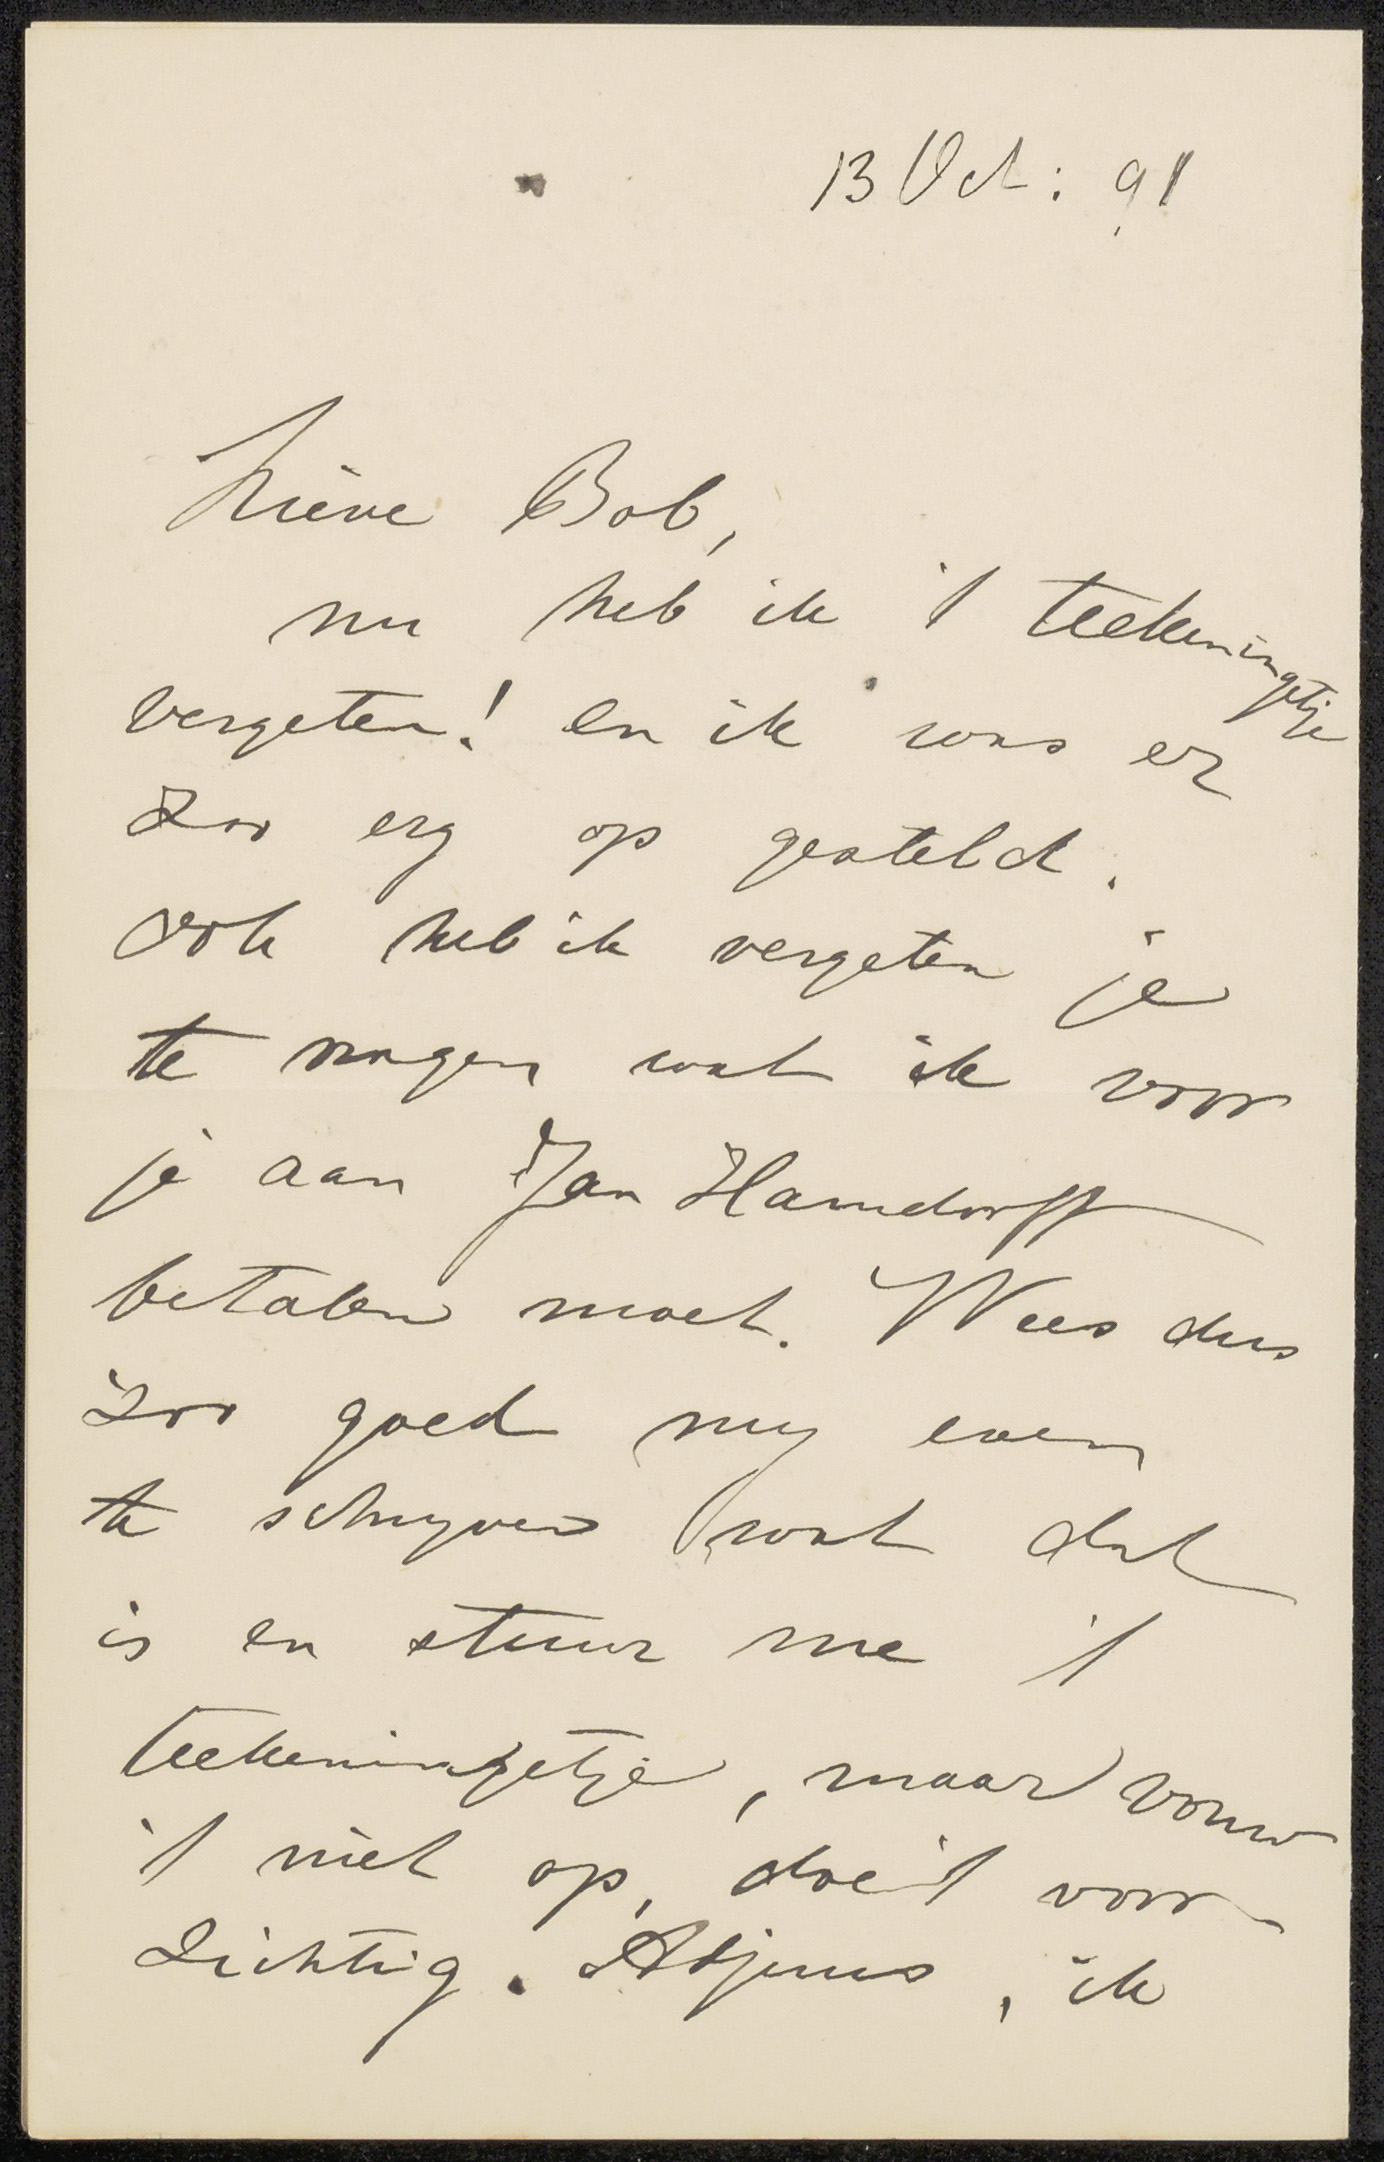 13 Oct: 91
Lieve Bob,
nu heb ik 't teekeningetje
vergeten! en ik was er
zoo erg op gesteld.
ook heb ik vergeten je
te vragen wat ik voor
je aan Jan Hamdorff
betalen moet. Wees dus
zoo goed my even
te schryven wat dat
is en stuur me 't
teekeningetje, maar vouw
't niet op, doe 't voor
zichtig. Adjuus, ik